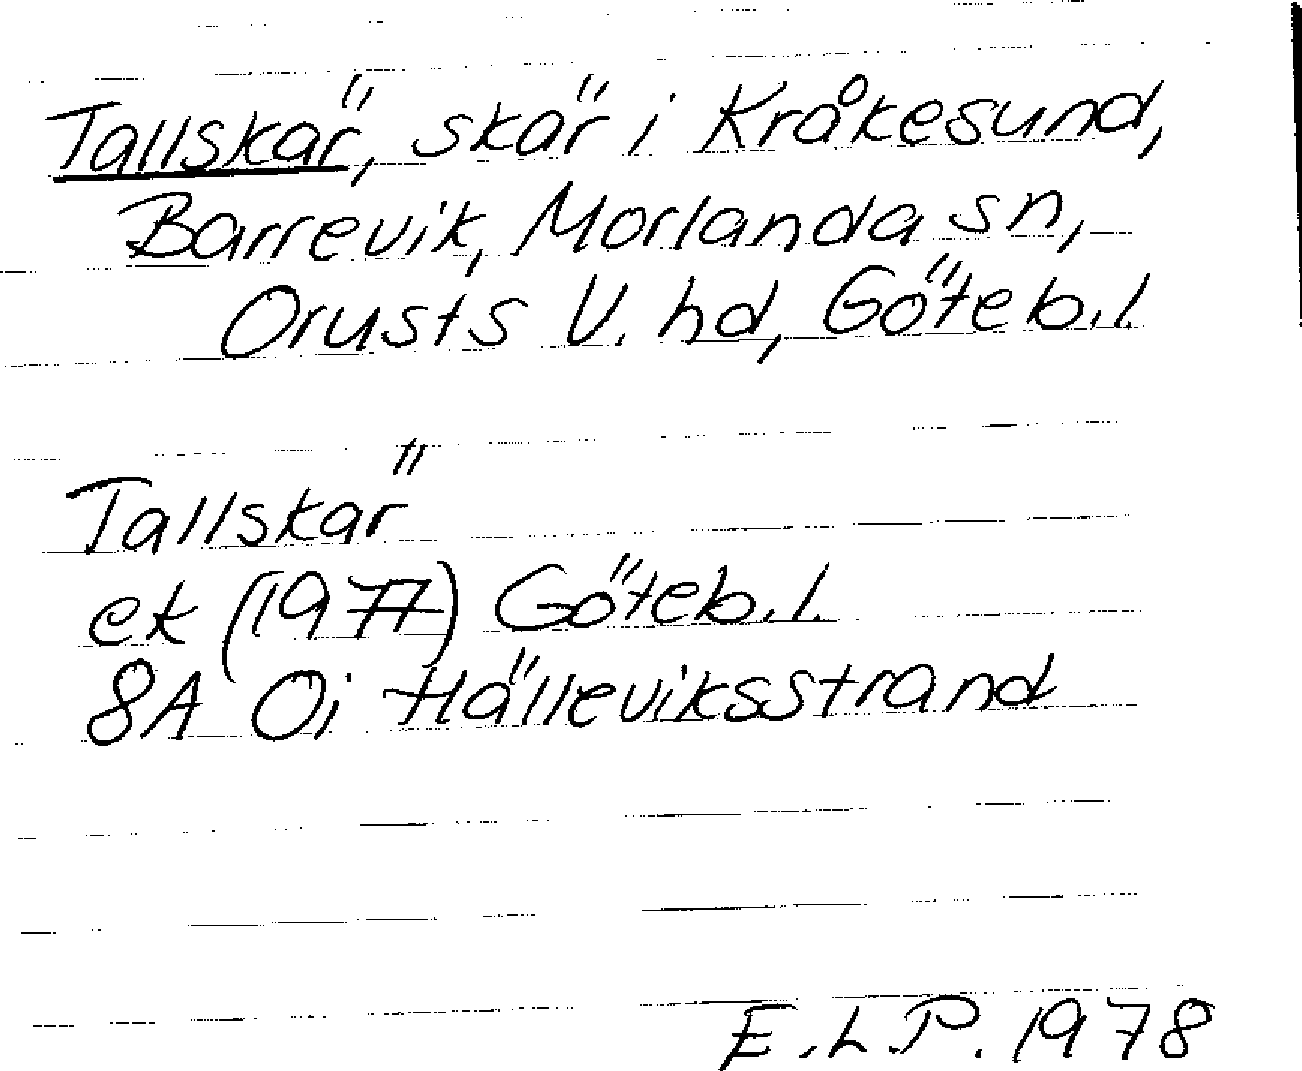 Tallskär, skär i Kråkesund,
Barrevik, Morlanda sn,
Orusts V. hd, Göteb.l.
Tallskär
ek (1977) Göteb.l.
8A Oi Hälleviksstrand
E.L.P. 1978